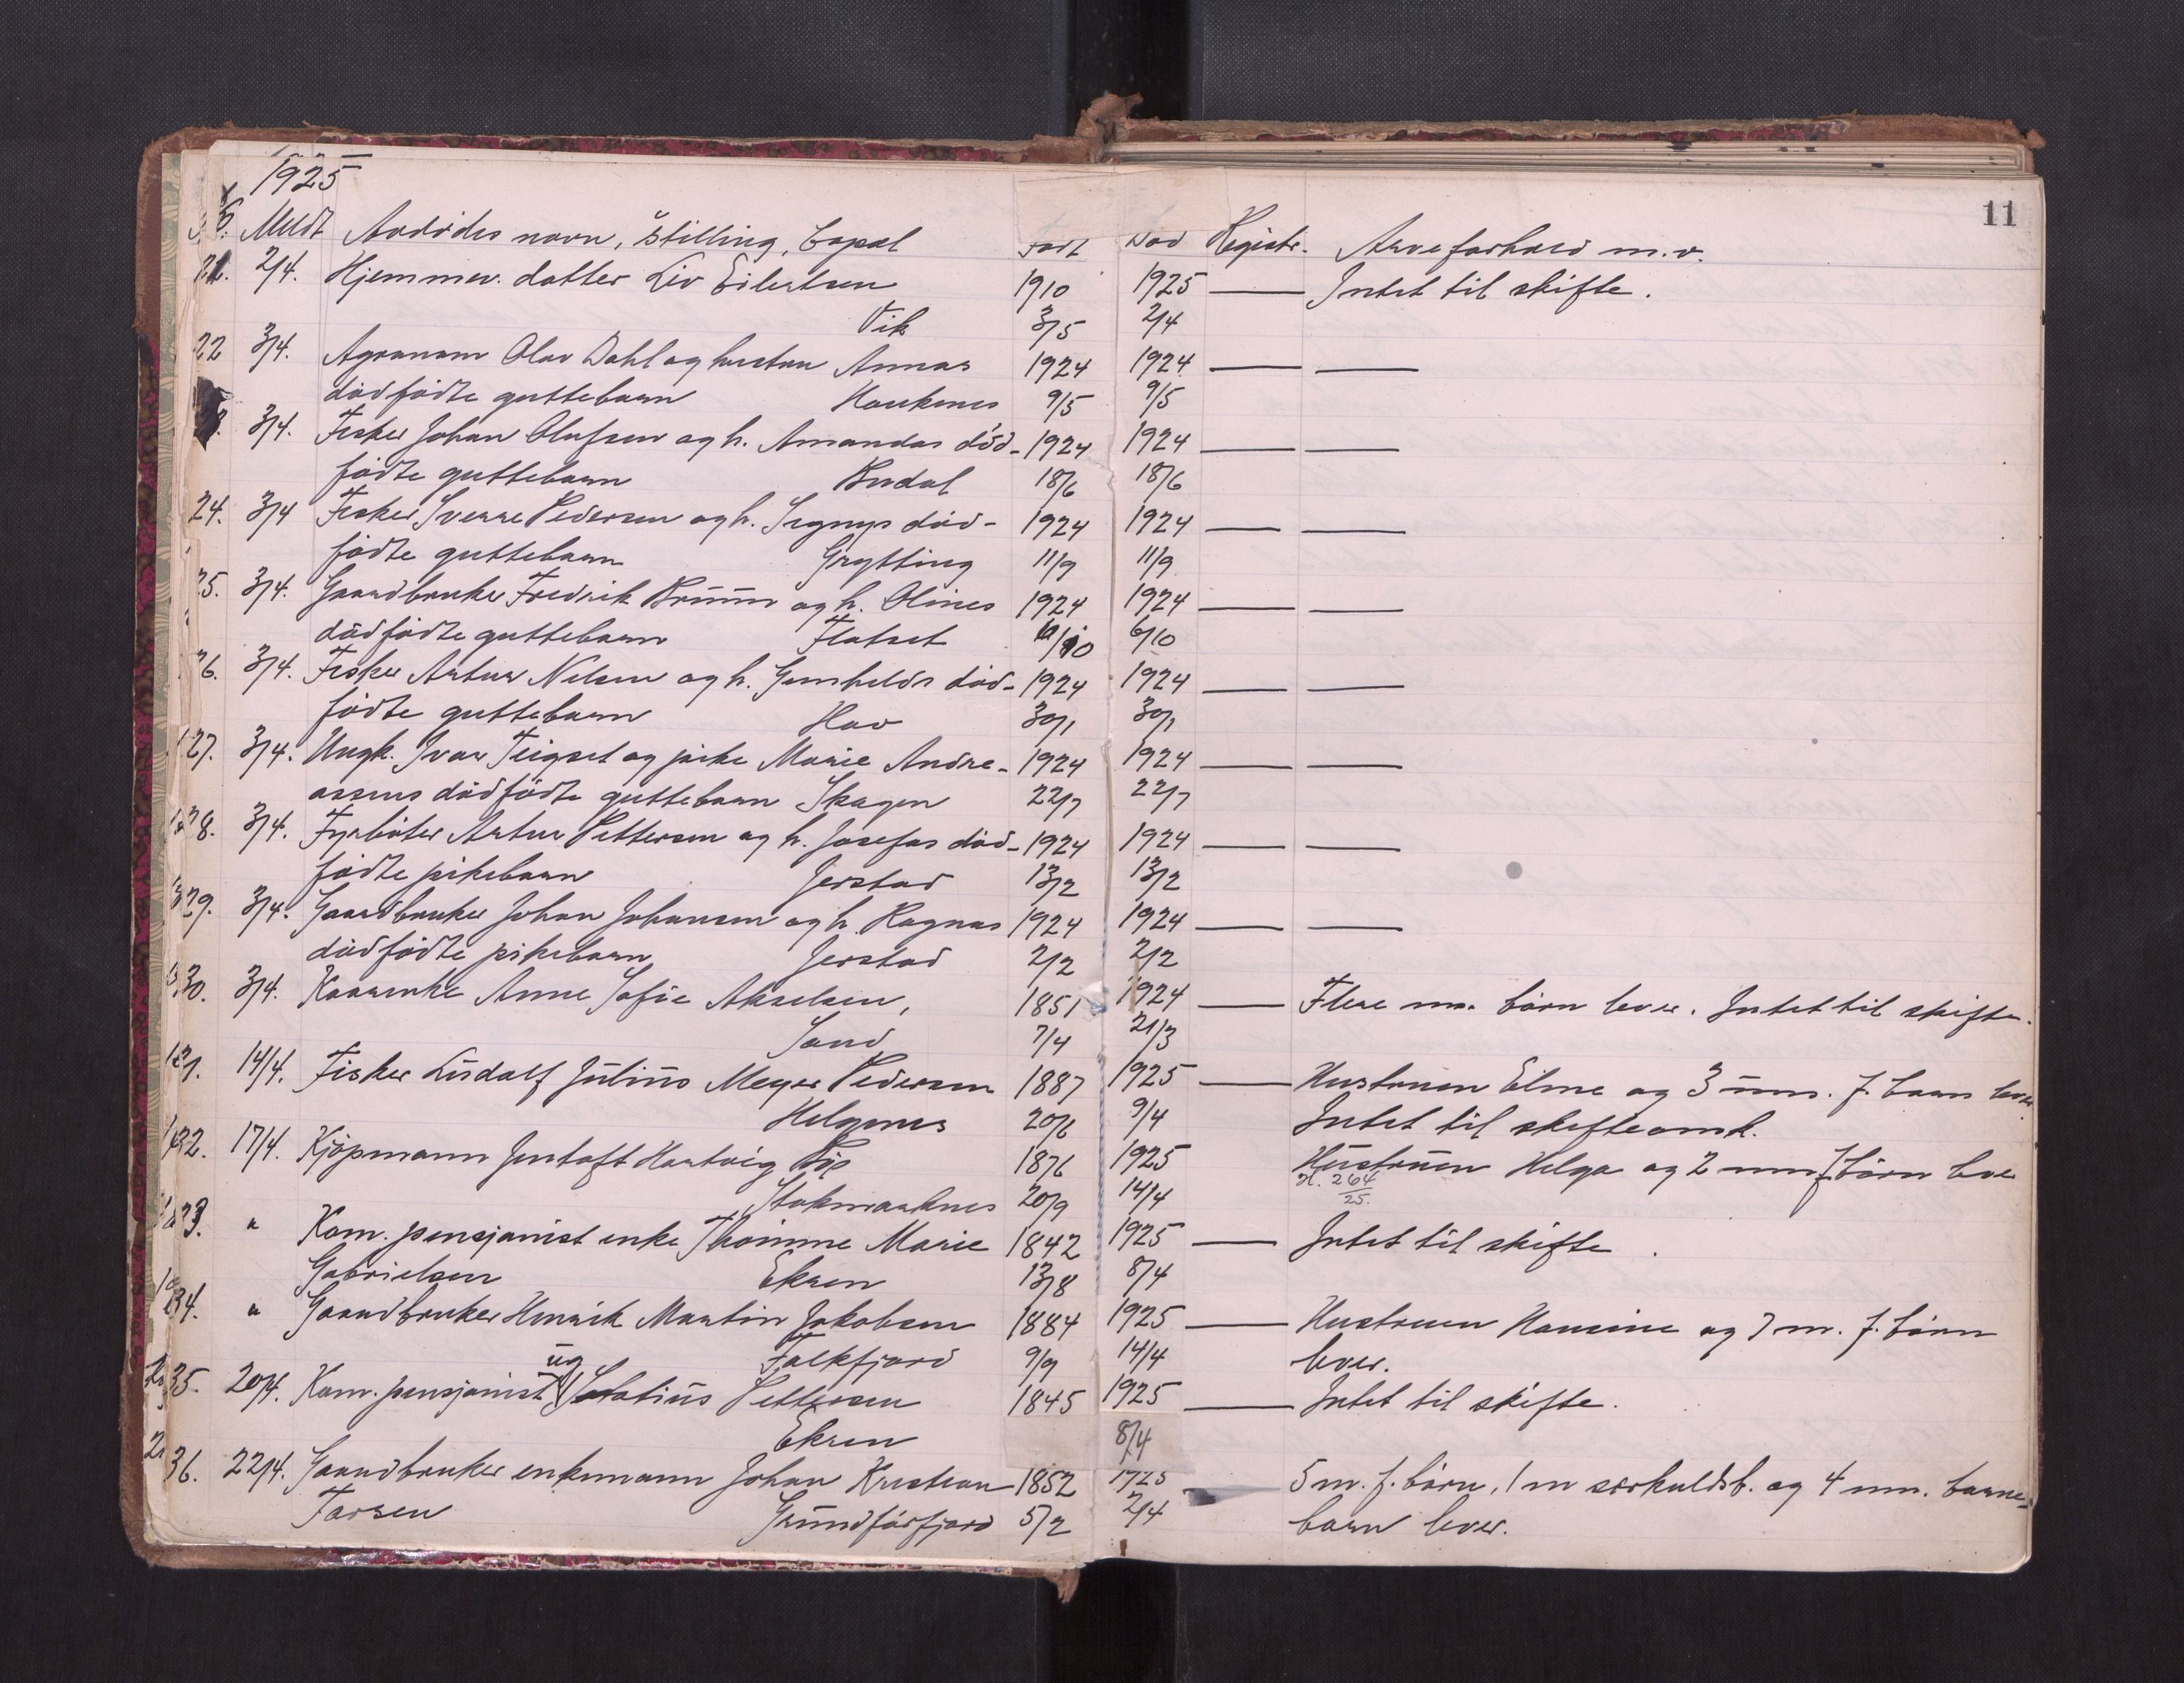 1925
11
Meldt Avdödes navn, Stilling, bopæl Födt Död Registr. Arveforhold m.v.
21. 2/4. Hjemmev. datter Liv Eilertsen 1910 1925 — Intet til skifte.
Vik 3/5 2/4
22 3/4. Agronom Olav Dahl og hustru Annas 1924 1924 — —
dödfödte guttebarn Haukenes 9/5 9/5
3/4. Fisker Johan Olufsen og h. Amandas död- 1924 1924 — —
födte guttebarn Budal 18/6 18/6
24. 3/4 Fisker Sverre Pedersen og h. Signys död- 1924 1924 — —
födte guttebarn Grytting 11/9 11/9
25. 3/4. Gaardbruker Fredrik Bruun og h. Olines 1924 1924 — —
dödfödte guttebarn Flatset 6/10 6/10
26. 3/4. Fisker Artur Nilsen og h. Gunhilds död- 1924 1924 — —
födte guttebarn Hav 30/1 30/1
27. 3/4. Ungk. Ivar Teigset og pike Marie Andre- 1924 1924 — —
assens dödfödte guttebarn Skagen 22/7 22/7
28. 3/4. Fyrböter Artur Pettersen og h. Josefas död- 1924 1924 — —
födte pikebarn Jerstad 13/2 13/2
29. 3/4. Gaardbruker Johan Johansen og h. Ragnas 1924 1924 — —
dödfödte pikebarn Jerstad 2/2 2/2
30. 3/4. Kaarenke Anne Sofie Akselsen, 1851 1924 — Flere m. börn lever. Intet til skifte.
Sand 7/4 21/3
31. 14/4. Fisker Ludolf Julius Meyer Pedersen 1887 1925 — Hustruen Eilme og 3 um. f. barn lever
Helgenes 20/6 9/4 Intet til skifteomh.
32. 17/4. Kjöpmann Jentoft Hartvig 1876 1925 Hustruen Helga og 2 um f börn lever
Stokmarknes 20/9 14/4 H. 264/25.
33. " Kom. pensjonist enke Thomine Marie 1842 1925 — Intet til skifte.
Gabrielsen Ekren 13/8 8/4
34. " Gaardbruker Henrik Martin Jakobsen 1884 1925 — Hustruen Hansine og 7 m. f. börn
Falkfjord 9/9 14/4 lever.
35. 20/4. Kom. pensjonist ug Pettersen 1845 1925 — Intet til skifte.
Ekren 8/4
36. 22/4. Gaardbruker enkemann Johan Kristian 1852 1925 — 5 m. f. börn, 1 m særkuldsb. og 4 um. barne-
Tarsen Grundförfjord 5/2 2/4 barn lever.